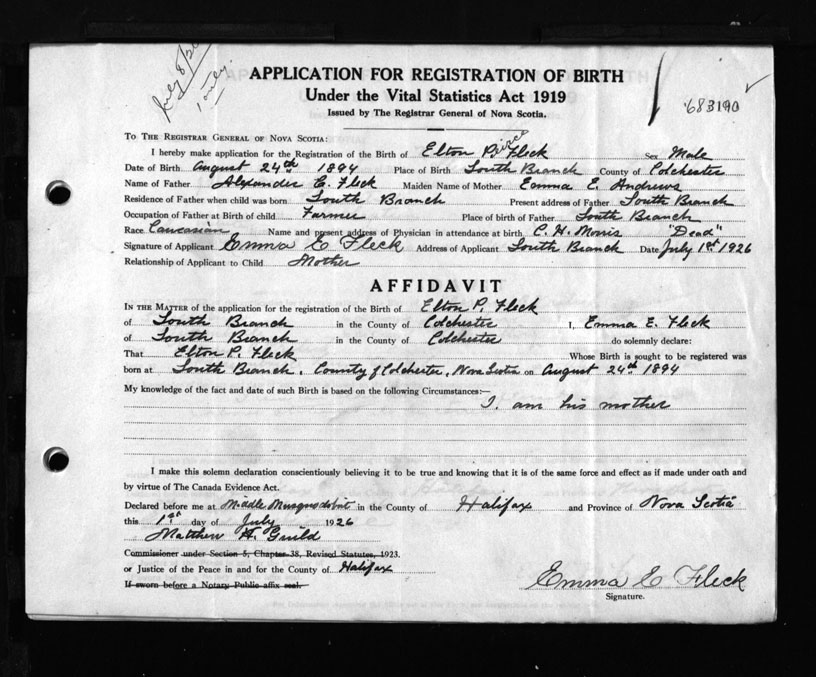 July 8/26
only.
APPLICATION FOR REGISTRATION OF BIRTH
Under the Vital Statistics Act 1919
Issued by The Registrar General of Nova Scotia.
683190
TO THE REGISTRAR GENERAL OF NOVA SCOTIA:
I hereby make application for the Registration of the Birth of Elton Pierce Fleck Sex Male
Date of Birth August 24th 1894 Place of Birth South Branch County of Colchester
Name of Father Alexander C. Fleck Maiden Name of Mother Emma E. Andrews
Residence of Father when child was born South Branch Present address of Father South Branch
Occupation of Father at Birth of child Farmer Place of birth of Father South Branch
Race Caucasian Name and present address of Physician in attendance at birth C. H. Morris "Dead"
Signature of Applicant Emma E Fleck Address of Applicant South Branch Date July 1st 1926
Relationship of Applicant to Child Mother
AFFIDAVIT
IN THE MATTER of the application for the registration of the Birth of Elton P. Fleck
of South Branch in the County of Colchester I, Emma E. Fleck
of South Branch in the County of Colchester do solemnly declare:
That Elton P. Fleck Whose Birth is sought to be registered was
born at South Branch, County of Colchester, Nova Scotia on August 24th 1894
My knowledge of the fact and date of such Birth is based on the following Circumstances:—
I. am his mother
I make this solemn declaration conscientiously believing it to be true and knowing that it is of the same force and effect as if made under oath and
by virtue of The Canada Evidence Act.
Declared before me at Middle Musquodoboit in the County of Halifax and Province of Nova Scotia
this 1st day of July 1926
Matthew H. Guild
Commissioner under Section 5, Chapter 38, Revised Statutes, 1923.
or Justice of the Peace in and for the County of Halifax
If sworn before a Notary Public affix seal.
Emma E Fleck
Signature.